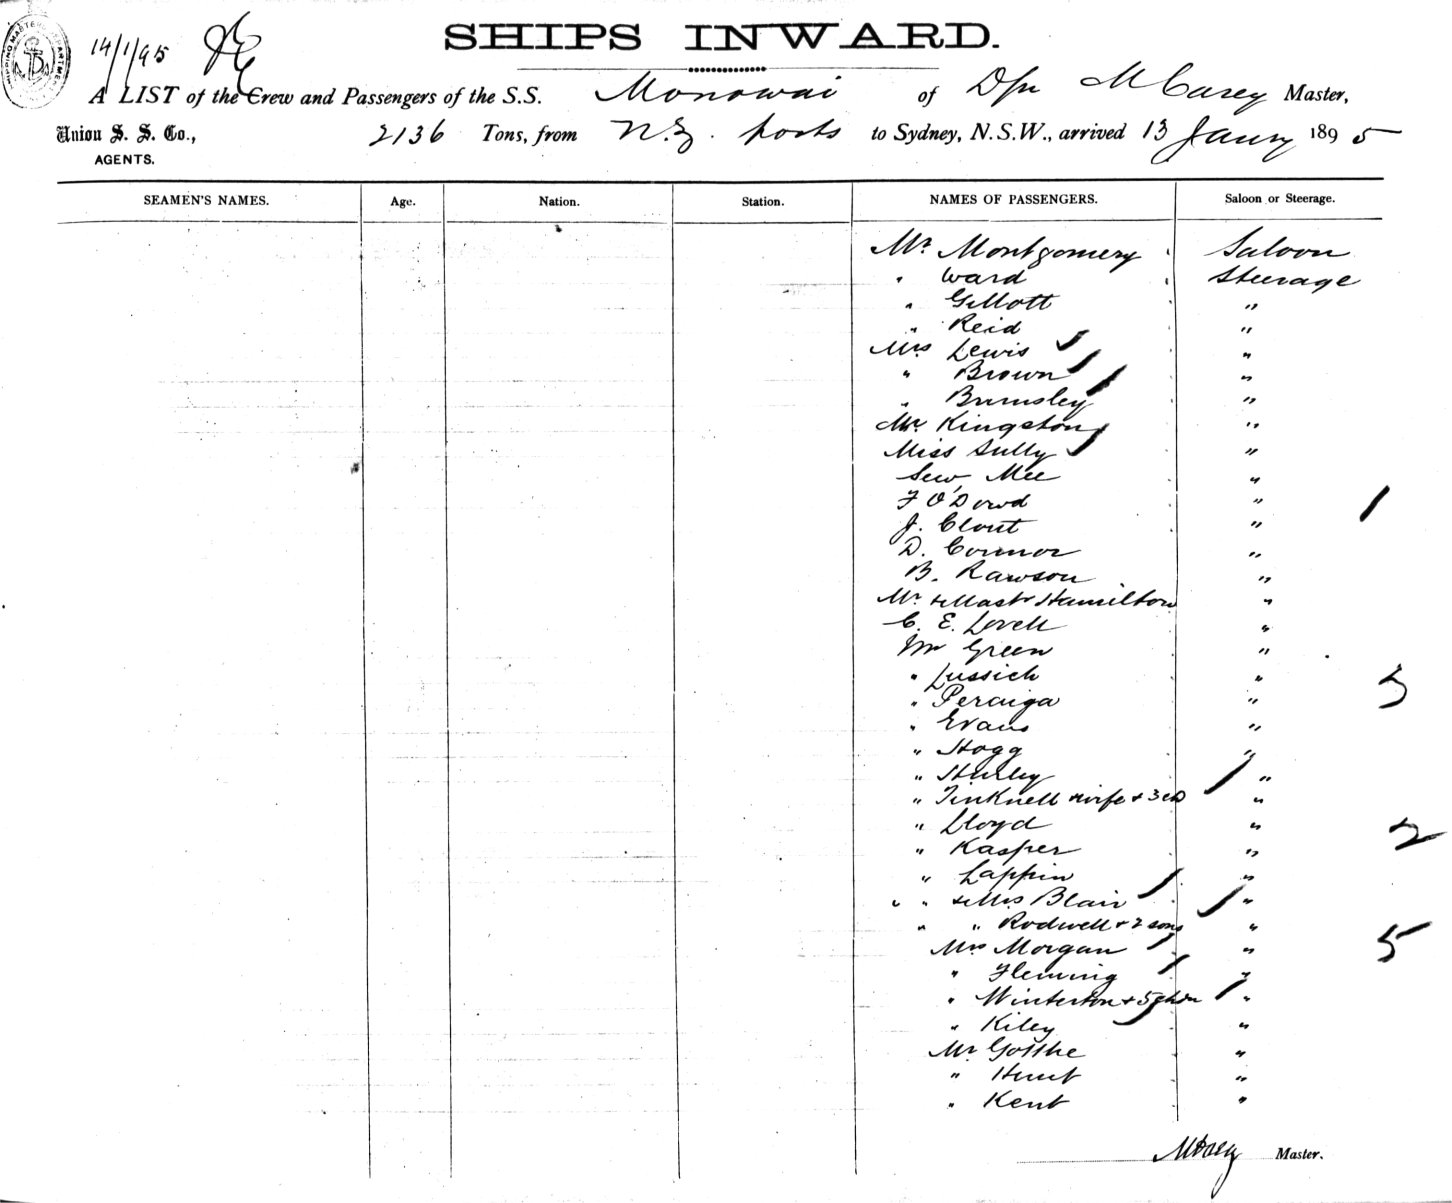 SHIPPING MASTER'S DEPARTMENT
14/1/95
SHIPS INWARD.
A LIST of the Crew and Passengers of the S.S. Monowai of Dn M Carey Master,
Union S. S. Co., 2136 Tons, from N.Z. ports to Sydney, N.S.W., arrived 13 Jany 1895
AGENTS.
SEAMEN'S NAMES. Age. Nation. Station. NAMES OF PASSENGERS. Saloon or Steerage.
Mr Montgomery Saloon
" Ward Steerage
" Gillott "
" Reid "
Mrs Lewis "
" Brown "
" Brumsley "
Mr Kingston "
Miss Sully "
Sew Mee "
F O'Dowd " 1
J. Clout "
D. Connor "
B. Rawson "
Mr & Mastr Hamilton "
C. E. Lovell "
Mr Green "
" Lussich " 3
" Peraiga "
" Evans "
" Hogg "
" Hurley "
" Tinknell wife & 3 "
" Lloyd " 2
" Kasper "
" Lappin "
" " & Mrs Blair "
" " Rodwell & 2 sons "
Mrs Morgan " 5
" Fleming "
" Winterton & 5 chdn "
" Kiley "
Mr Gotthe "
" Hunt "
" Kent "
M Carey Master.